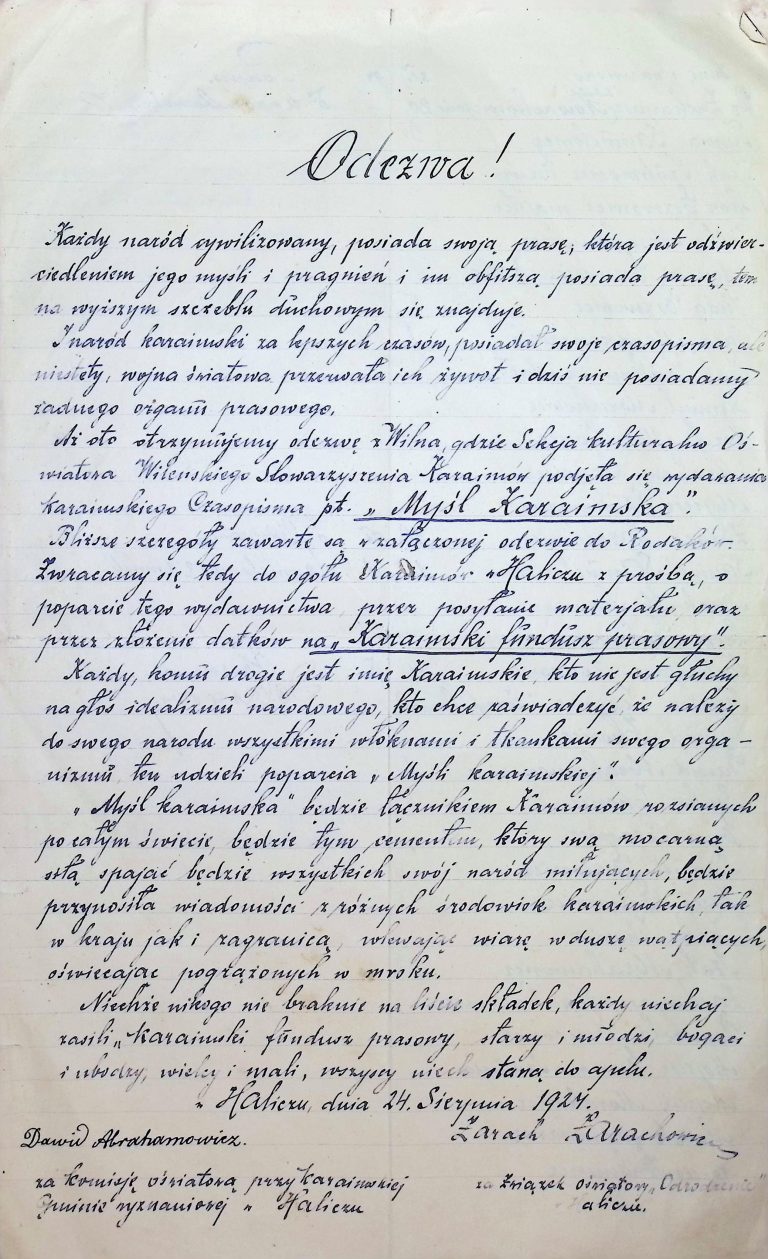 Odezwa!
Każdy naród cywilizowany, posiada swoją prasę, która jest odźwier-
ciedleniem jego myśli i pragnień i im obfitszą posiada prasę, tem
na wyższym szczeblu duchowym się znajduje.
I naród karaimski za lepszych czasów, posiadał swoje czasopisma, ale
niestety, wojna światowa przerwała ich żywot i dziś nie posiadamy
żadnego organu prasowego.
Aż oto otrzymujemy odezwę z Wilna, gdzie Sekcja kulturalno Oś-
wiatowa Wileńskiego Stowarzyszenia Karaimów podjęła się wydawania
karaimskiego Czasopisma pt. „Myśl Karaimska".
Bliższe szczegóły zawarte są w załączonej odezwie do Rodaków.
Zwracamy się tedy do ogółu Karaimów w Haliczu z prośbą, o
poparcie tego wydawnictwa przez posyłanie materjału, oraz
przez złożenie datków na „Karaimski fundusz prasowy".
Każdy, komu drogie jest imię Karaimskie, kto nie jest głuchy
na głos idealizmu narodowego, kto chce zaświadczyć, że należy
do swego narodu wszystkimi włóknami i tkankami swego orga-
nizmu, ten udzieli poparcia „Myśli karaimskiej".
„Myśl karaimska" będzie łącznikiem Karaimów rozsianych
po całym świecie, będzie tym cementem, który swą mocarną
siłą spajać będzie wszystkich swój naród miłujących, będzie
przynosiła wiadomości z różnych środowisk karaimskich, tak
w kraju jak i zagranicą, wlewając wiarę w duszę wątpiących,
oświecając pogrążonych w mroku.
Niechże nikogo nie braknie na liście składek, każdy niechaj
zasili „Karaimski fundusz prasowy, starzy i młodzi, bogaci
i ubodzy, wielcy i mali, wszyscy niech staną do apelu.
w Haliczu, dnia 24. Sierpnia 1924.
Dawid Abrahamowicz. Zarach Zarachowicz
za komisję oświatową przy karaimskiej za Związek oświatowy „Odrodzenie"
Gminie wyznaniowej w Haliczu Haliczu.